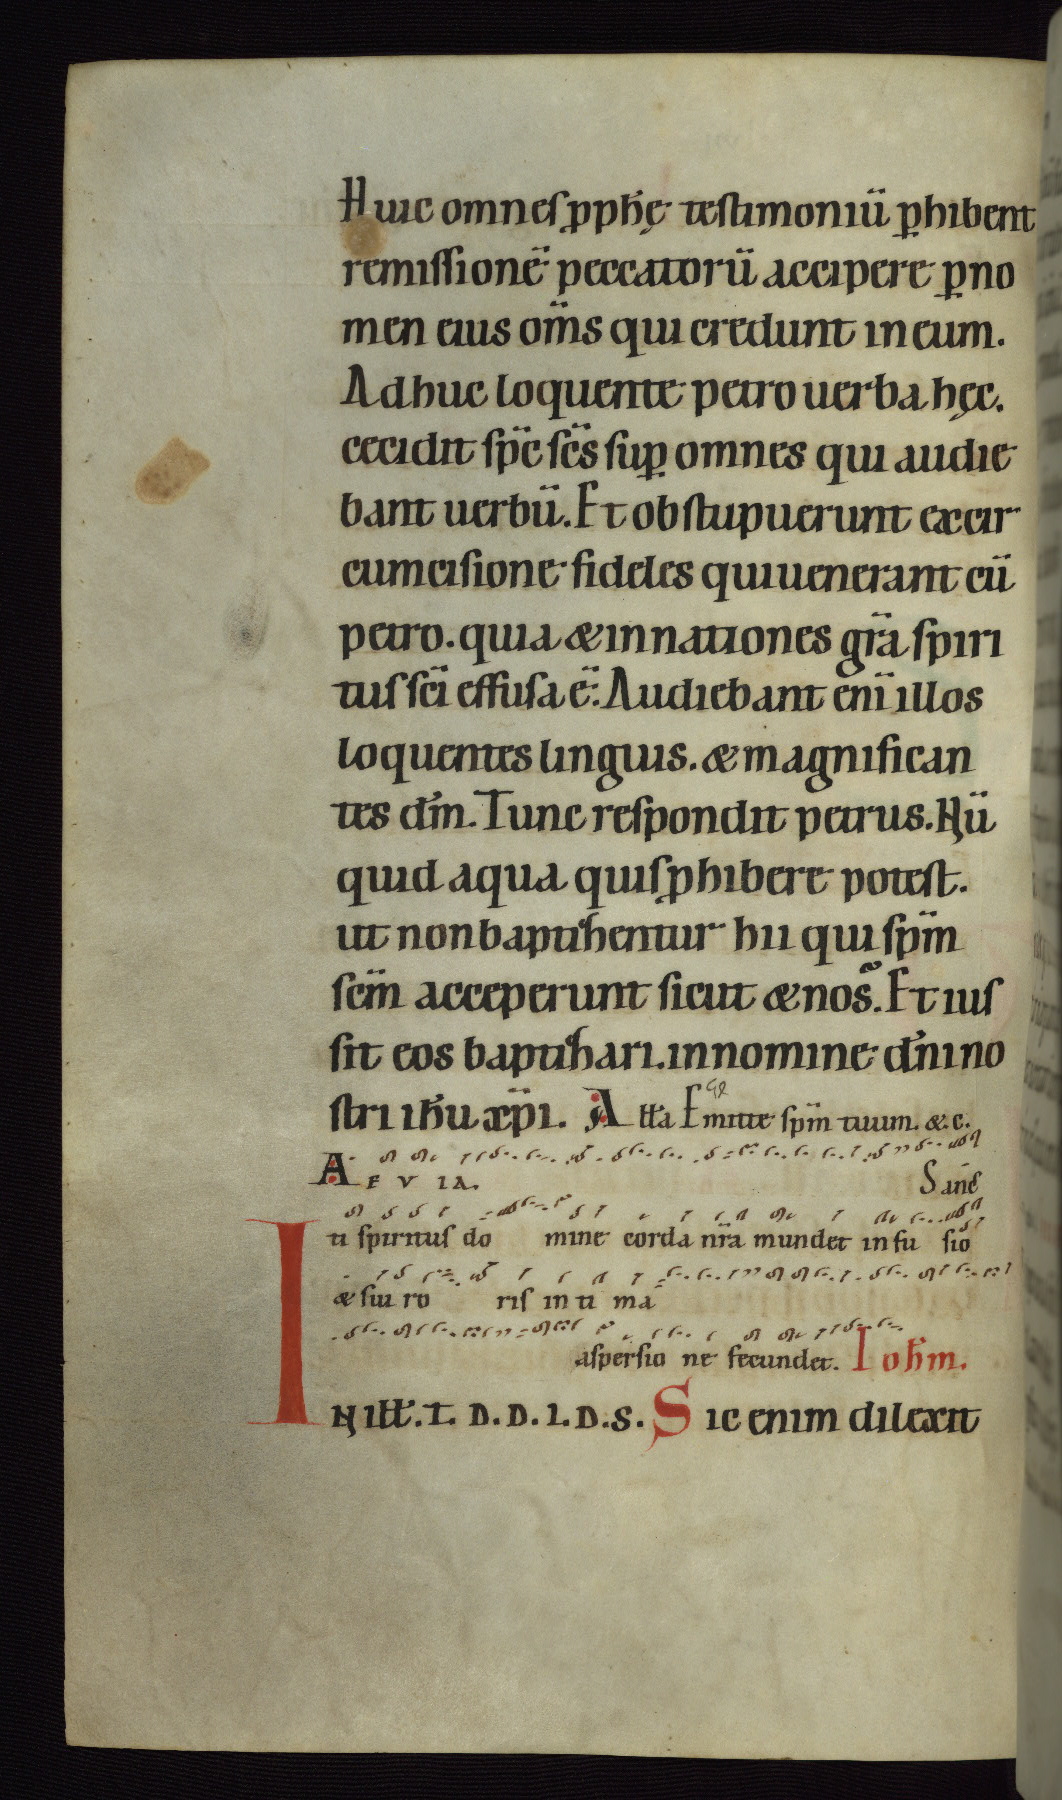 Huic omnes ꝓph̅ę testimoniū ꝑhibent
remissionē peccatorū accipere ꝑ no
men eius om̅s qui credunt in eum.
Adhuc loquente petro uerba hęc.
cecidit sp̅c sc̅s suꝑ omnes qui audie
bant uerbū. Et obstupuerunt ex cir
cumcisione fideles qui uenerant cū
petro. quia & in nationes gr̅a spiri
tus sc̅i effusa ē. Audiebant eni̅ illos
loquentes linguis. & magnifican
tes dm̅. Tunc respondit petrus. Nū
quid aqua quis ꝓhibere potest.
ut non baptihentur hii qui spm̅
scm̅ acceperunt sicut & nos. Et ius
sit eos baptihari. in nomine dn̅i no
stri ih̅u xp̅i. A ll̅a Emitte spm̅ tuum. &. c.
A E V IA. Sanc̅
ti spiritus do mine corda nr̅a mundet in fu sio
& sui ro ris in ti ma
aspersio ne fecundet. Ioh̅m.
IN ill̅. T. D. D. I. D. S. Sic enim dilexit